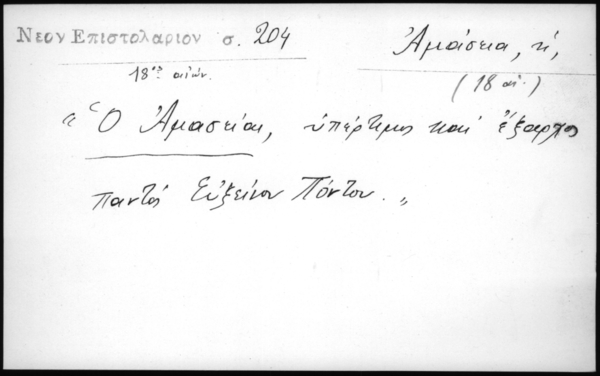 Νεον Επιστολαριον σ. 204
Ἀμάσεια, ἡ,
18ος αιών.
(18 αἰ.)
"Ὁ Ἀμασείας, ὑπέρτιμος καὶ ἔξαρχος
παντὸς Εὐξείνου Πόντου."